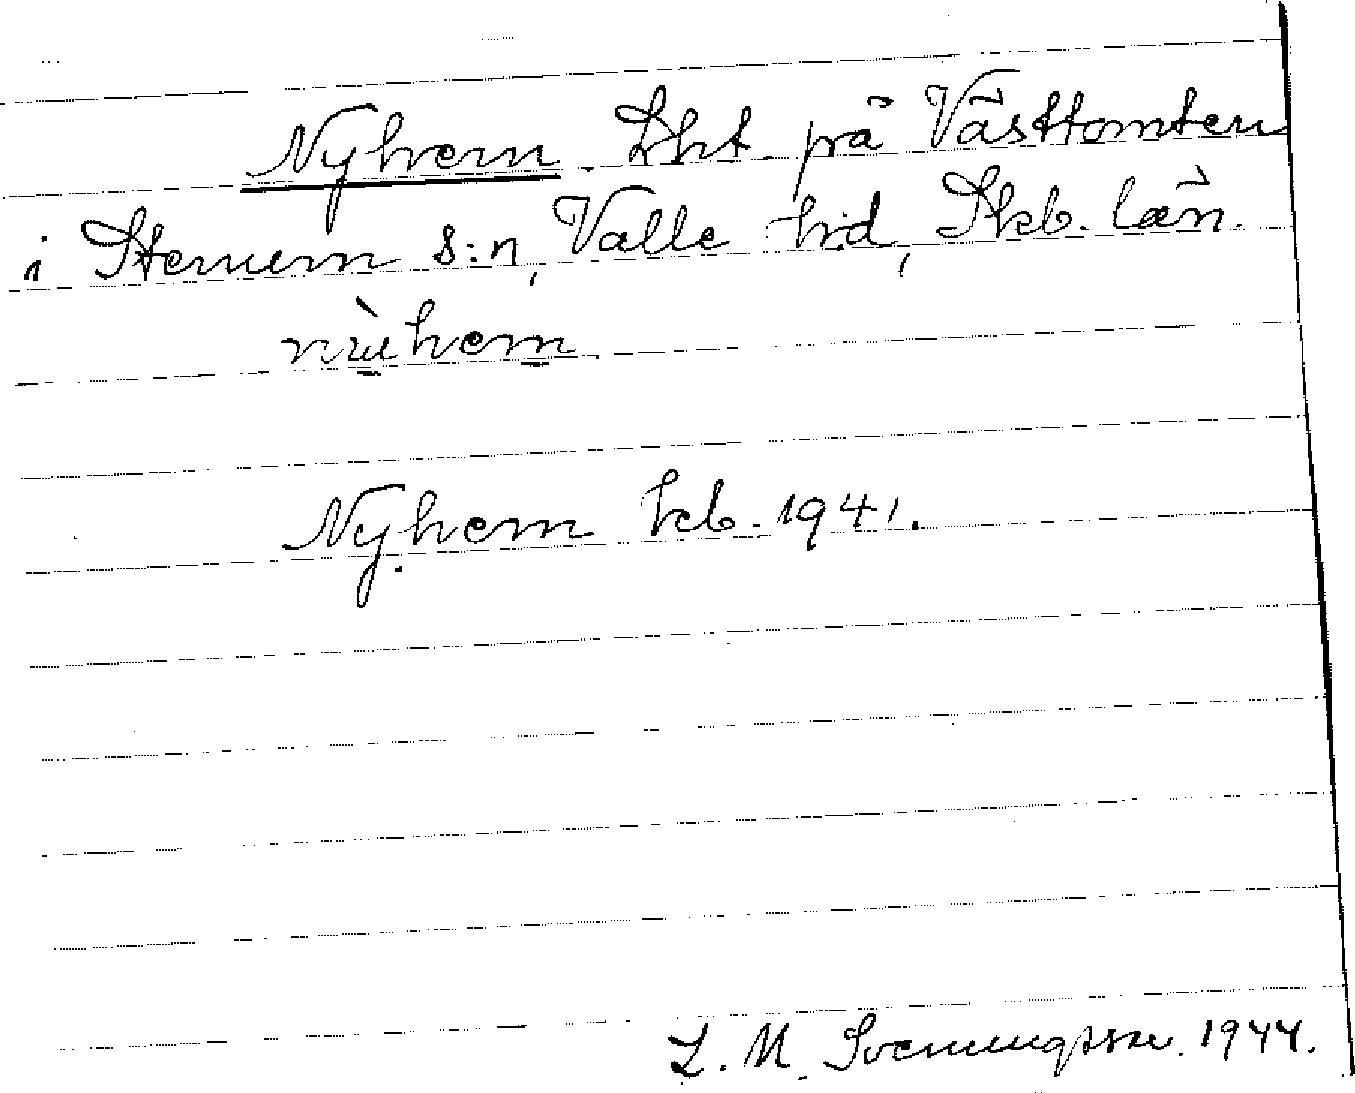 Nyhem. Lht på Västtomten
i Stenum s:n, Valle hd, Skb. län.
Nyhem kb. 1941.
L. M. Svenungsson. 1944.